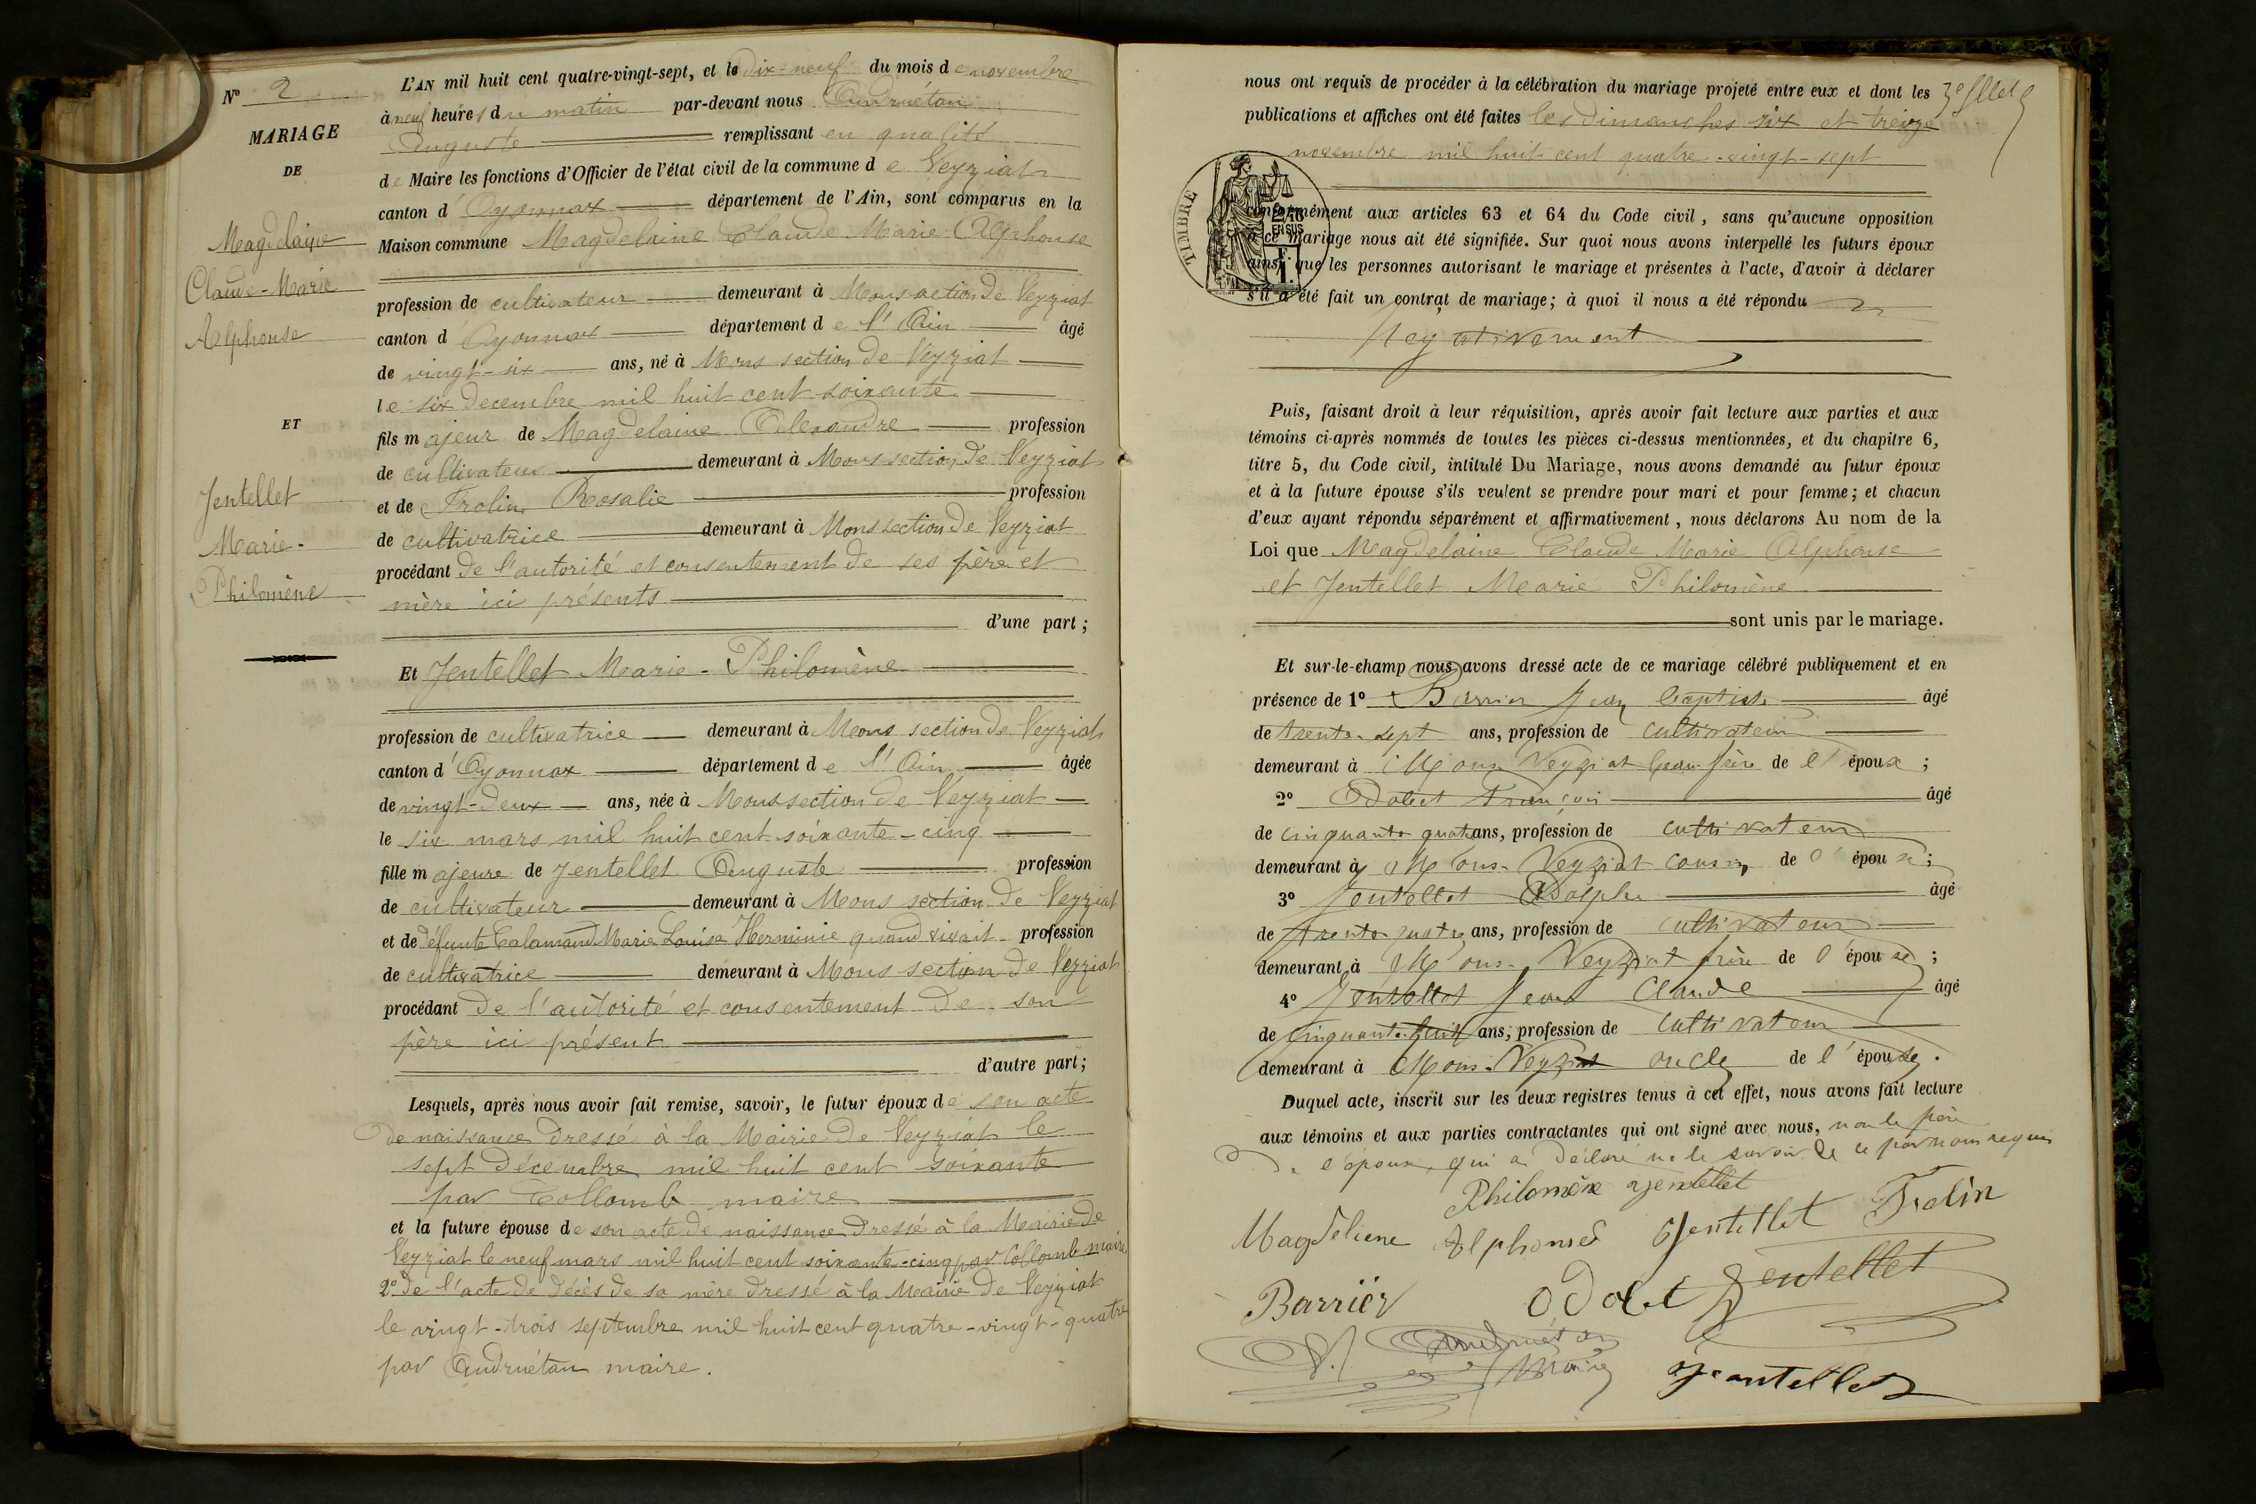 N° 2
MARIAGE
DE
Magdelaine
Claude-Marie
Alphonse
ET
Jentellet
Marie-
Philomène
L'AN mil huit cent quatre-vingt-sept, et le dix-neuf du mois de novembre
à neuf heures du matin par-devant nous Andruétan
Auguste remplissant en qualité
de Maire les fonctions d'Officier de l'état civil de la commune de Veyziat
canton d'Oyonnax département de l'Ain, sont comparus en la
Maison commune Magdelaine Claude Marie Alphonse
profession de cultivateur demeurant à Mons section de Veyziat
canton d'Oyonnax département de l'Ain âgé
de vingt-six ans, né à Mons section de Veyziat
le six decembre mil huit cent soixante
fils majeur de Magdelaine Alexandre profession
de cultivateur demeurant à Mons section de Veyziat
et de Frolin Rosalie profession
de cultivatrice demeurant à Mons section de Veyziat
procédant de l'autorité et consentement de ses père et
mère ici présents
d'une part;
Et Jentellet Marie-Philomène
profession de cultivatrice demeurant à Mons section de Veyziat
canton d'Oyonnax département de l'Ain âgée
de vingt-deux ans, née à Mons section de Veyziat
le six mars mil huit cent soixante-cinq
fille majeure de Jentellet Auguste profession
de cultivateur demeurant à Mons section de Veyziat
et de défunte Calamand Marie Louise Herminie quand vivait profession
de cultivatrice demeurant à Mons section de Veyziat
procédant de l'autorité et consentement de son
père ici présent
d'autre part;
Lesquels, après nous avoir fait remise, savoir, le futur époux de son acte
de naissance dressé à la Mairie de Veyziat le
sept Décembre mil huit cent soixante
par Collomb maire
et la future épouse de son acte de naissance dressé à la Mairie de
Veyziat le neuf mars mil huit cent soixante-cinq par Collomb maire
2° de l'acte de décès de sa mère dressé à la Mairie de Veyziat
le vingt-trois septembre mil huit cent quatre-vingt-quatre
par Andruétan maire.
nous ont requis de procéder à la célébration du mariage projeté entre eux et dont les
publications et affiches ont été faites les dimanches six et treize
novembre mil huit cent quatre-vingt-sept
TIMBRE
EN SUS
conformément aux articles 63 et 64 du Code civil, sans qu'aucune opposition
à ce mariage nous ait été signifiée. Sur quoi nous avons interpellé les futurs époux
ainsi que les personnes autorisant le mariage et présentes à l'acte, d'avoir à déclarer
s'il a été fait un contrat de mariage; à quoi il nous a été répondu
Negativement
Puis, faisant droit à leur réquisition, après avoir fait lecture aux parties et aux
témoins ci-après nommés de toutes les pièces ci-dessus mentionnées, et du chapitre 6,
titre 5, du Code civil, intitulé Du Mariage, nous avons demandé au futur époux
et à la future épouse s'ils veulent se prendre pour mari et pour femme; et chacun
d'eux ayant répondu séparément et affirmativement, nous déclarons Au nom de la
Loi que Magdelaine Claude Marie Alphonse
et Jentellet Marie Philomène
sont unis par le mariage.
Et sur-le-champ nous avons dressé acte de ce mariage célébré publiquement et en
présence de 1° Barrier Jean baptiste âgé
de trente-sept ans, profession de cultivateur
demeurant à Mons Veyziat beau frère de l'époux;
2° Odobet François âgé
de cinquante quatre ans, profession de cultivateur
demeurant à Mons-Veyziat cousin de l'épouse;
3° Jentellet Adolphe âgé
de trente quatre ans, profession de cultivateur
demeurant à Mons-Veyziat frère de l'épouse;
4° Jentellet Jean Claude âgé
de cinquante-huit ans, profession de cultivateur
demeurant à Mons-Veyziat oncle de l'épouse.
Duquel acte, inscrit sur les deux registres tenus à cet effet, nous avons fait lecture
aux témoins et aux parties contractantes qui ont signé avec nous, non le père
de l'époux qui a déclaré ne le savoir de ce par nous requis
Philomène Jentellet
Magdeliene Alphonse Jentellet Frolin
Barriér Odobet Jentellet
Andruétan
Maire
Jeantellet